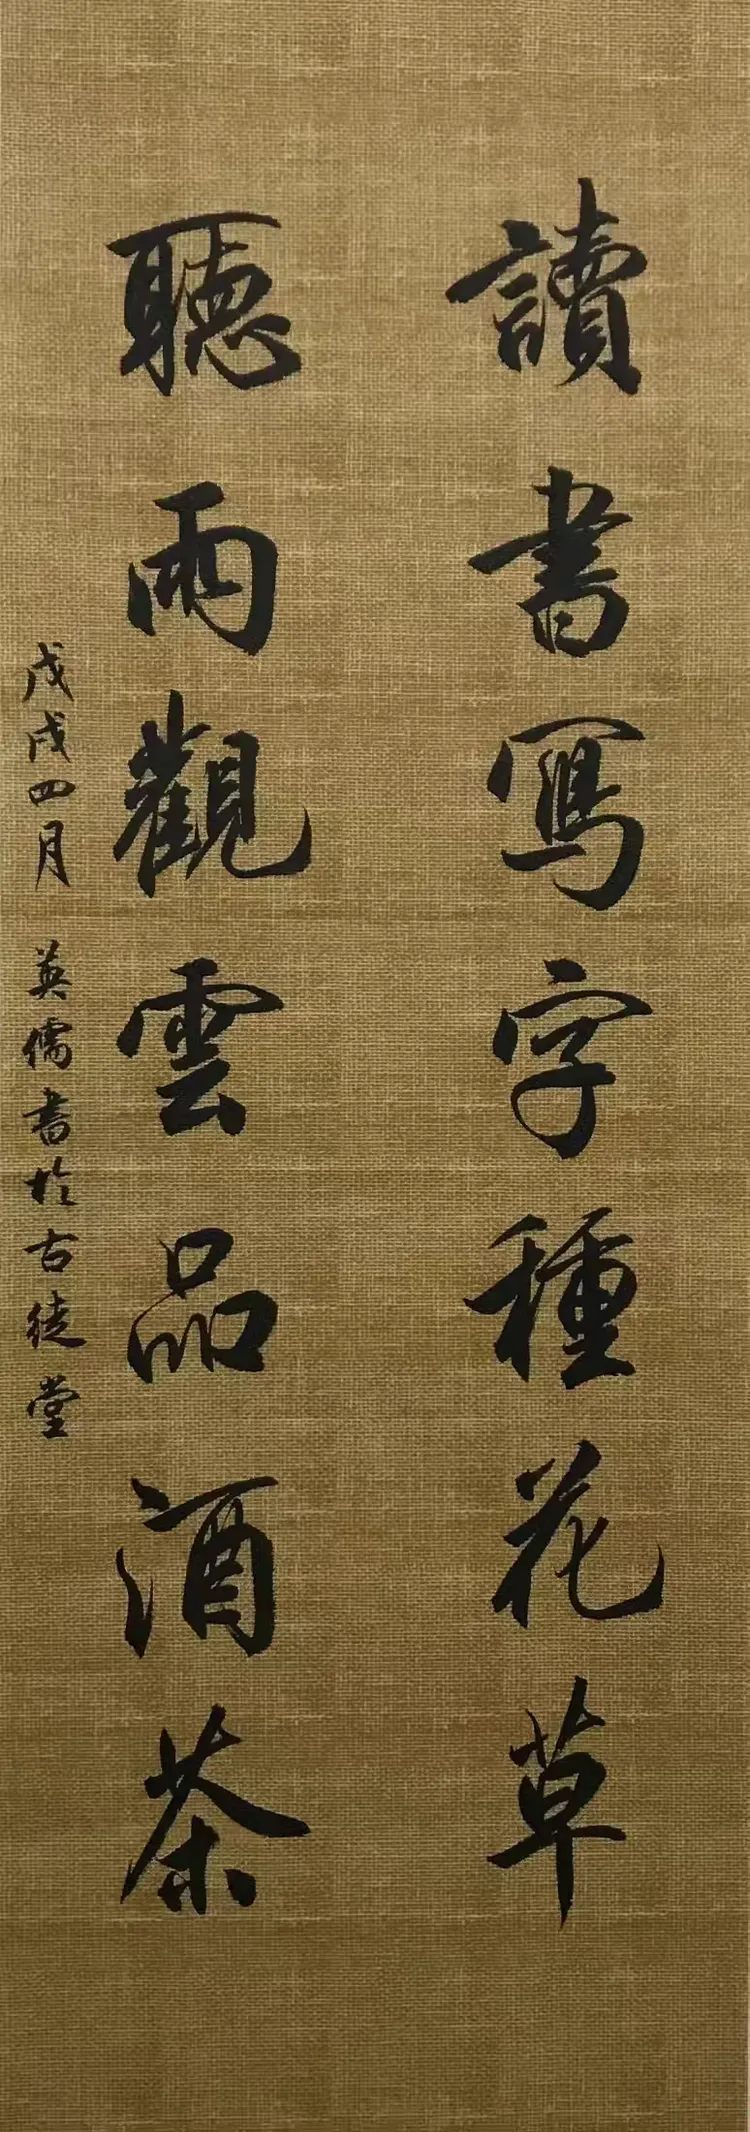 讀書寫字種花草
聽雨觀雲品酒茶
戊戌四月 英儒書於古徒堂